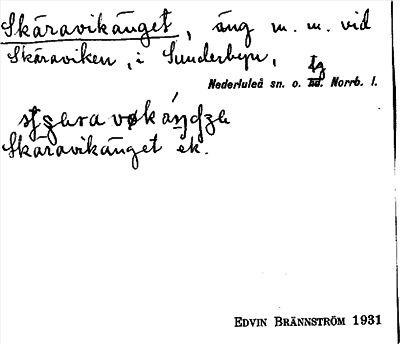 Skäravikänget, äng m. m. vid
Skäraviken, i Sunderbyn,
tg
Nederluleå sn. o. sd. Norrb. l.
Skäravikänget ek.
EDVIN BRÄNNSTRÖM 1931